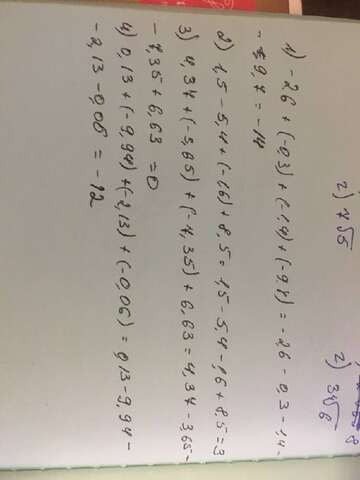 2) 7√5
2) 3√6
1) -2,6 + (-0,3) + (-1,4) + (-9,7) = -2,6 - 0,3 - 1,4 -
- 9,7 = -14
2) 1,5 - 5,4 + (-1,6) + 8,5 = 1,5 - 5,4 - 1,6 + 8,5 = 3
3) 4,34 + (-3,65) + (-7,35) + 6,63 = 4,34 - 3,65 -
- 7,35 + 6,63 = 0
4) 0,13 + (-9,94) + (-2,13) + (-0,06) = 0,13 - 9,94 -
- 2,13 - 0,06 = -12